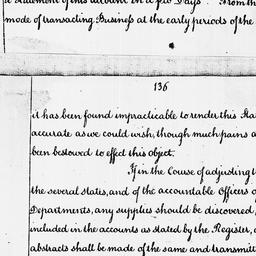 Statement of this account in a few Days". From th
mode of transacting Business at the early periods of the
136
it has been found impracticable to render this Sta
accurate as we could wish, though much pains a
been bestowed to effect this object.
If in the Couse of adjusting t
the several states, and of the accountable Officers o
Departments, any supplies should be discovered,
included in the accounts as stated by the Register, a
abstracts shall be made of the same and transmitt